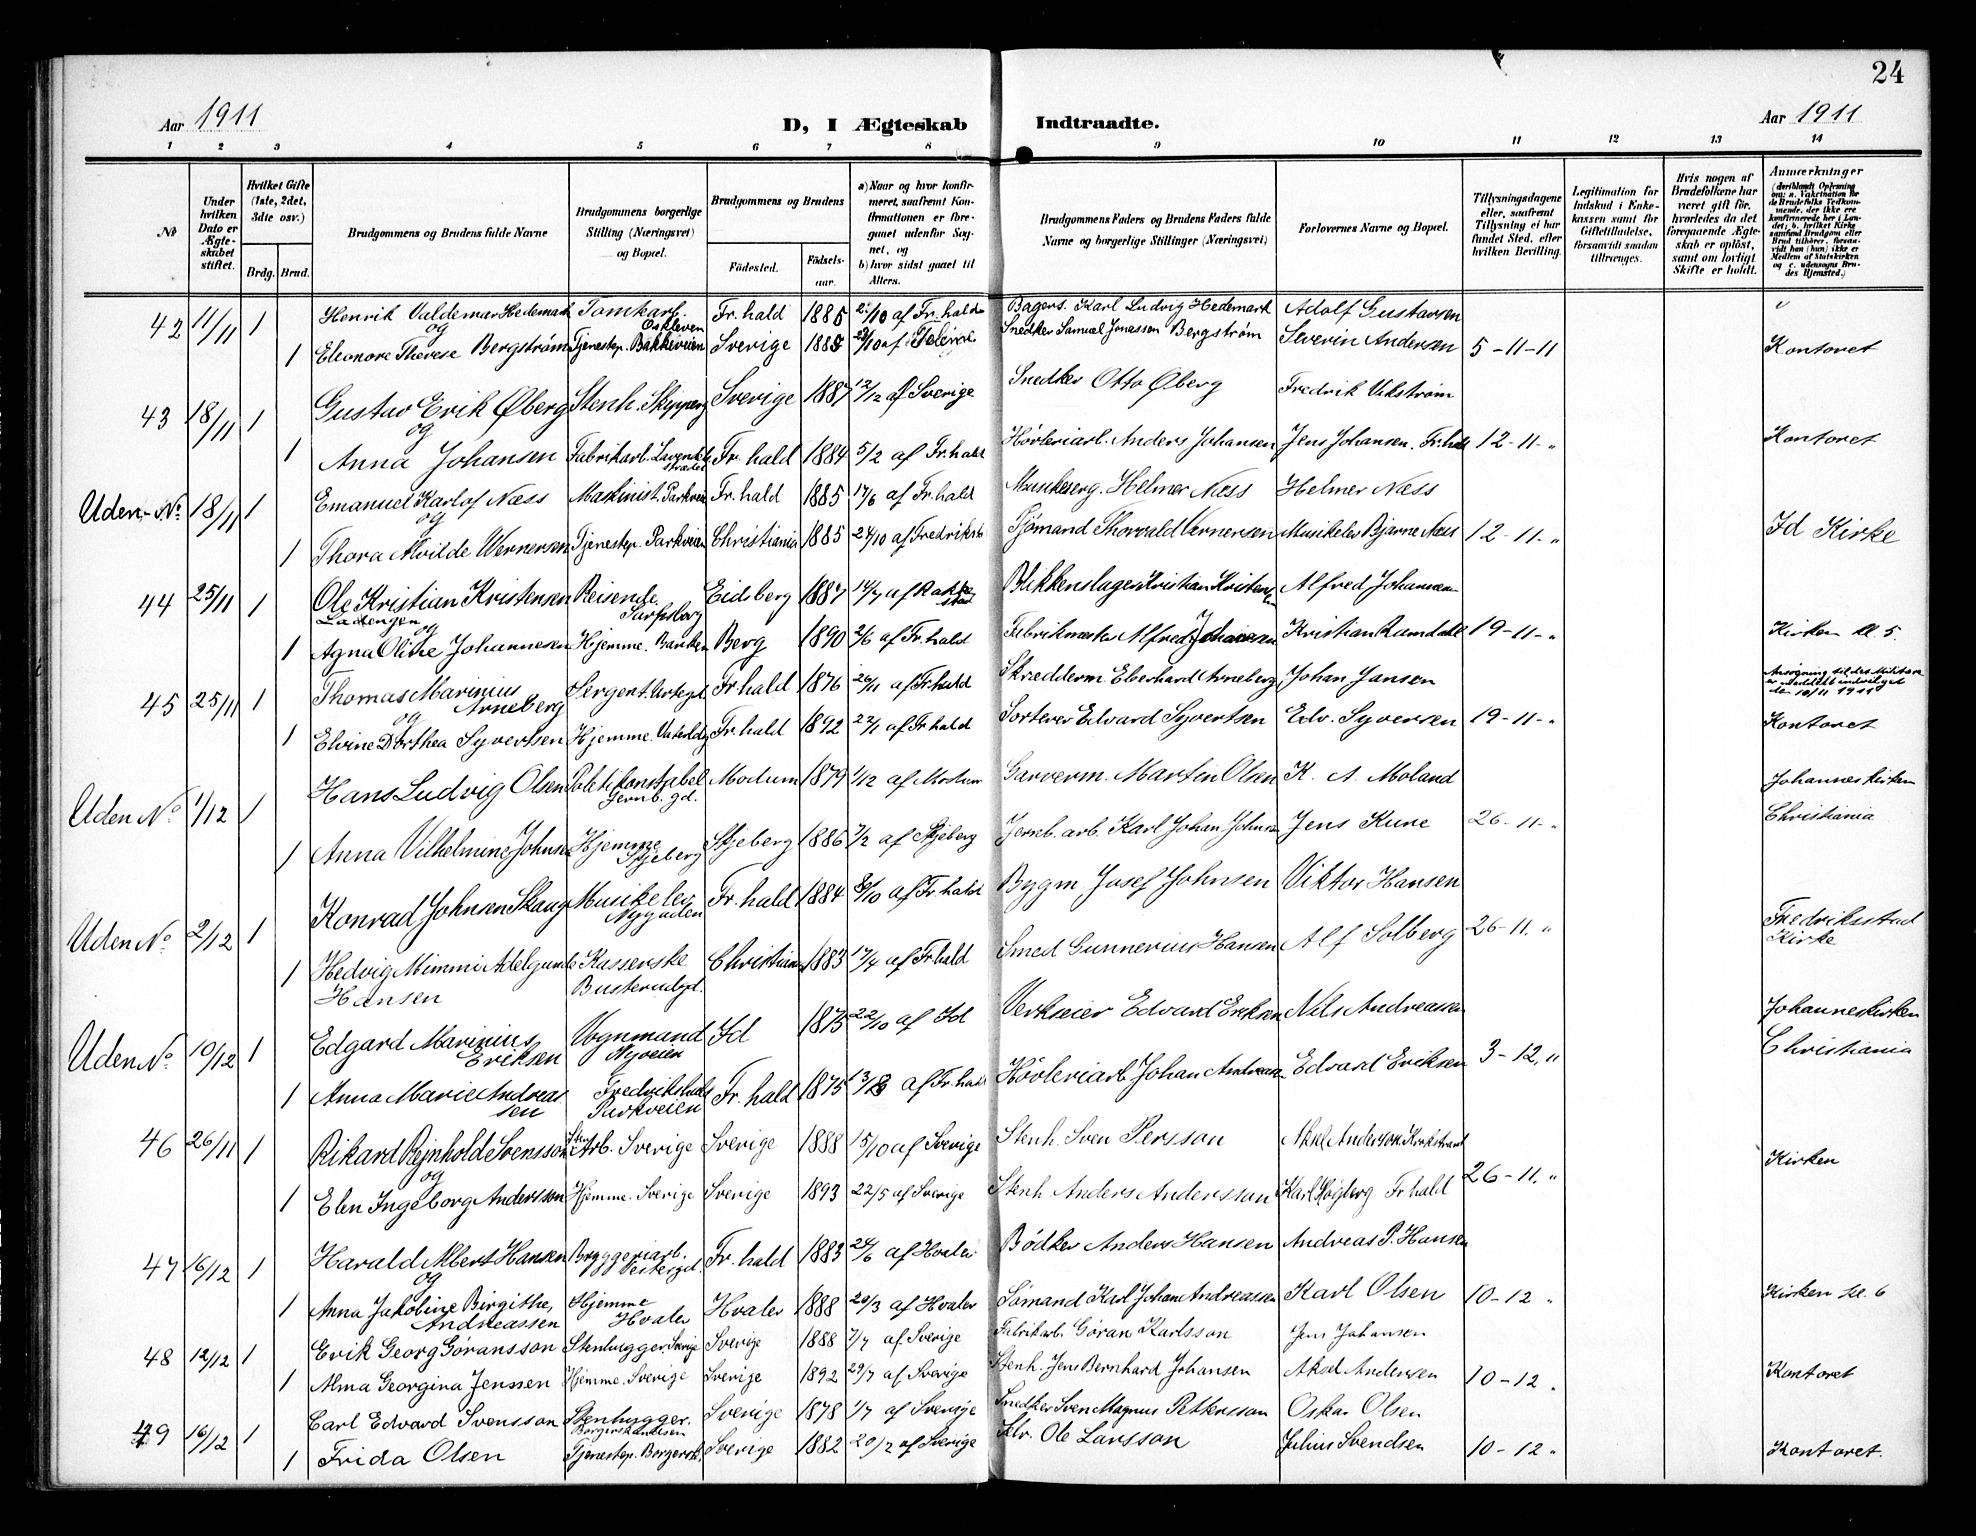 24
Aar 1911
D, I Ægteskab Indtraadte.
Aar 1911
1 2 3 4 5 6 7 8 9 10 11 12 13 14
No
Under hvilken Dato er Ægteskabet stiftet.
Hvilket Gifte (1ste, 2det, 3die osv.)
Brdg. Brud.
Brudgommens og Brudens fulde Navne
Brudgommens borgerlige Stilling (Næringsvei) og Bopæl.
Brudgommens og Brudens
Födested.
Födsels-aar.
a) Naar og hvor konfirmeret, saafremt Konfirmationen er foregaaet udenfor Sognet, og
b) hvor sidst gaaet til Alters.
Brudgommens Faders og Brudens Faders fulde Navne og borgerlige Stillinger (Næringsvei)
Forlovernes Navne og Bopæl.
Tillysningsdagene eller, saafremt Tillysning ei har fundet Sted, efter hvilken Bevilling.
Legitimation for Indskud i Enkekassen samt for Giftetilladelse, forsaavidt saadan tiltrænges.
Hvis nogen af Brudefolkene har været gift för, hvorledes da det foregaaende Ægteskab er oplöst, samt om lovligt Skifte er holdt.
Anmærkninger
42 11/11 1 Henrik Valdemar Hedemark Tomtearb. Oskleven Fr.hald 1885 /10 af Fr.hald Bagers. Karl Ludvig Hedemark Adolf Gustavsen "
og
1 Eleonore Therese Bergstrøm Tjenestep. Bakkeveien Sverige 1885 Snedker Samuel Jonasson Bergstrøm Severin Andersen 5-11-11 Kontoret
43 18/11 1 Gustav Erik Øberg Stenh. Sverige 1887 12/12 af Sverige Snedker Otto Øberg Fredrik Vikstrøm
og
1 Anna Johansen Fabrikarb. Fr.hald 1884 5/2 af Fr.hald Høvleriarb. Anders Johansen Jens Johansen. Fr.hald 12-11-" Kontoret
Uden No 18/11 1 Emanuel Karlof Næss Maskinist. Parkveien Fr.hald 1885 17/6 af Fr.hald Helmer Næss Helmer Næss
og
1 Thora Alvilde Wernersen Tjenestep. Parkveien Christiania 1885 24/10 af Fredriksst. Sjømand Thorvald Wernersen Musikelev Bjarne Næss 12-11-" Id Kirke
44 25/11 1 Ole Kristian Kristensen Reisende. Sarpsborg Eidsberg 1887 14/7 af Rakkestad Blikkenslager Kristian Kristensen Alfred Johannesen
Ladengen
og
1 Agna Olise Johannesen Hjemme. Banken Berg 1890 2/6 af Fr.hald Fabrikmester Alfred Johannesen Kristian Ramdahl 19-11-" Kirken kl 5.
45 25/11 1 Thomas Marinius Arneberg Sergent. Fr.hald 1876 26/11 af Fr.hald Skrædderm Eberhard Arneberg Johan Jansen
og
1 Elvine Dorthea Syvertsen Hjemme. Fr.hald 1892 22/11 af Fr.hald Sorterer Edvard Syvertsen Edv. Syversen 19-11-" Kontoret
Uden No 1/12 1 Hans Ludvig Olsen Politikonstabel Jernb.gd. Modum 1879 1/12 af Modum Garverm. Martin Olsen K. A. Moland Johanneskirken
1 Anna Vilhelmine Johnsen Hjemme Skjeberg Skjeberg 1886 7/2 af Skjeberg Jernb. arb. Karl Johan Johnsen Jens Kure 26-11-" Christiania
Uden No 2/12 1 Konrad Johnsen Skaug Musikelev Nygaden Fr.hald 1884 /10 af Fr.hald Bygm Josef Johnsen Viktor Hansen Fredriksstad Kirke
1 Hedvig Mimmi Adelgunde Hansen Kasserske Busterudgd. Christiania 1883 17/4 af Fr.hald Smed Gunnerius Hansen Alf Solberg 26-11."
Uden No 10/12 1 Edgard Marinius Eriksen Vognmand Nyveien Id 1875 22/10 af Id Verkseier Edvard Eriksen Nils Andreassen Johanneskirken
1 Anna Marie Andreassen Fredrikshald Parkveien Fr.hald 1875 af Fr.hald Høvleriarb Johan Andreassen Edvard Eriksen 3-12." Christiania
46 26/11 1 Rikard Rejnhold Svensson Arb. Sverige Sverige 1888 15/10 af Sverige Stenh. Sven Persson Aksel Anderson
og
1 Elen Ingeborg Andersson Hjemme. Sverige Sverige 1893 22/5 af Sverige Stenh Anders Andersson Karl Høgberg Fr.hald 26-11." Kirken
47 16/12 1 Harald Albert Hansen Bryggeriarb. Vestergd. Fr.hald 1883 24/6 af Hvaler Bødker Anders Hansen Andreas P. Hansen
og
1 Anna Jakobine Birgithe Andreassen Hjemme Hvaler Hvaler 1888 20/3 af Hvaler Sømand Karl Johan Andreassen Karl Olsen 10-12 " Kirken kl. 6
48 12/12 1 Erik Georg Göransson Stenhugger Sverige Sverige 1888 7/7 af Sverige Fabrikarb. Göran Karlsson Jens Johansen
1 Alma Georgina Jenssen Hjemme. Sverige Sverige 1892 29/7 af Sverige Stenh. Jens Bernhard Johansen Aksel Andersen 10-12 " Kontoret
49 16/12 1 Carl Edvard Svensson Stenhugger. Sverige 1878 1/7 af Sverige Snedker Sven Magnus Pettersson Oskar Olsen
1 Frida Olsen Tjenestep. Sverige 1882 20/2 af Sverige Ole Larsson Julius Svendsen 10-12 " Kontoret.